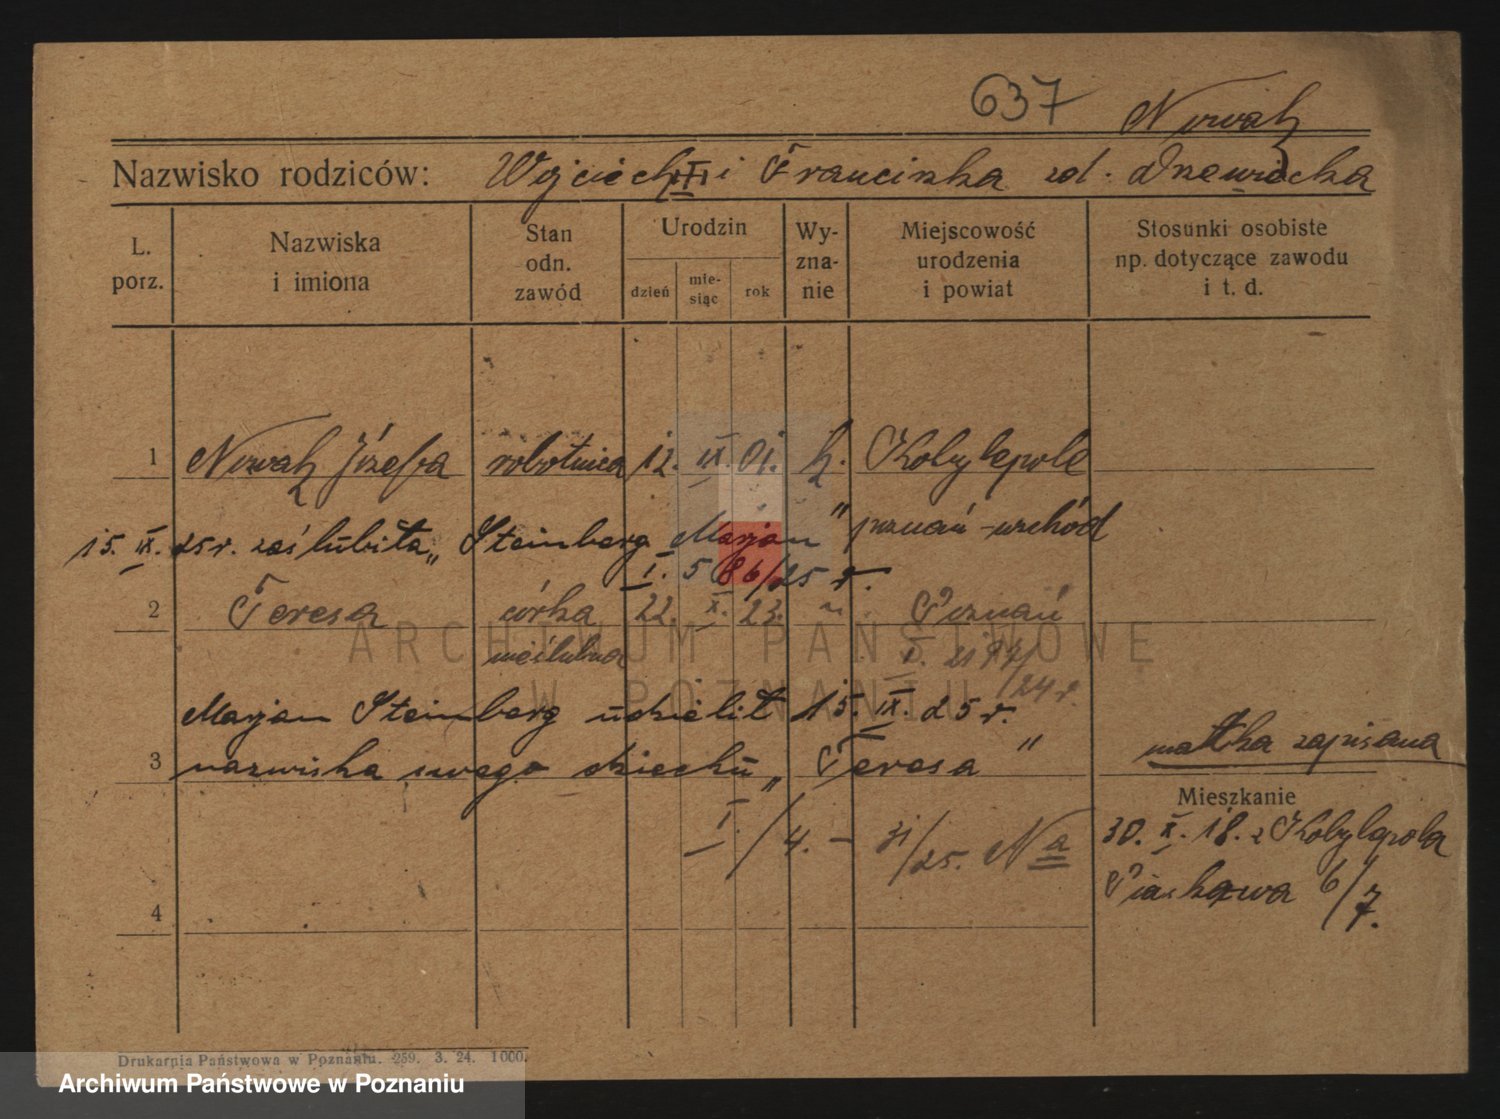 637 Nowak
Nazwisko rodziców: Wojciech i Franciszka zd. Drzewiecka
L. porz.
Nazwiska i imiona
Stan odn. zawód
Urodzin
dzień
mie-
siąc
rok
Wy-
zna-
nie
Miejscowość urodzenia i powiat
Stosunki osobiste
np. dotyczące zawodu
i t. d.
1 Nowak Józefa robotnica 12. IX. 01. k. Kobylepole
15. IX. 25 r. zaślubiła „Steinberg Marjan" poznań-wschód
I. 586/25 r.
2 Teresa córka 22. X. 23. " Poznań
nieślubna
24 r.
Marjan Steinberg udzielił 15. IX. 25 r.
3 nazwiska swego dziecku „Teresa"
matka zapisana
Mieszkanie
I./4. - 31/25. Na
30. X. 18. z Kobylepola
Piaskowa 6/7.
4
Drukarnia Państwowa w Poznaniu. 259. 3. 24. 1000.
ARCHIWUM PAŃSTWOWE
W POZNANIU
Archiwum Państwowe w Poznaniu